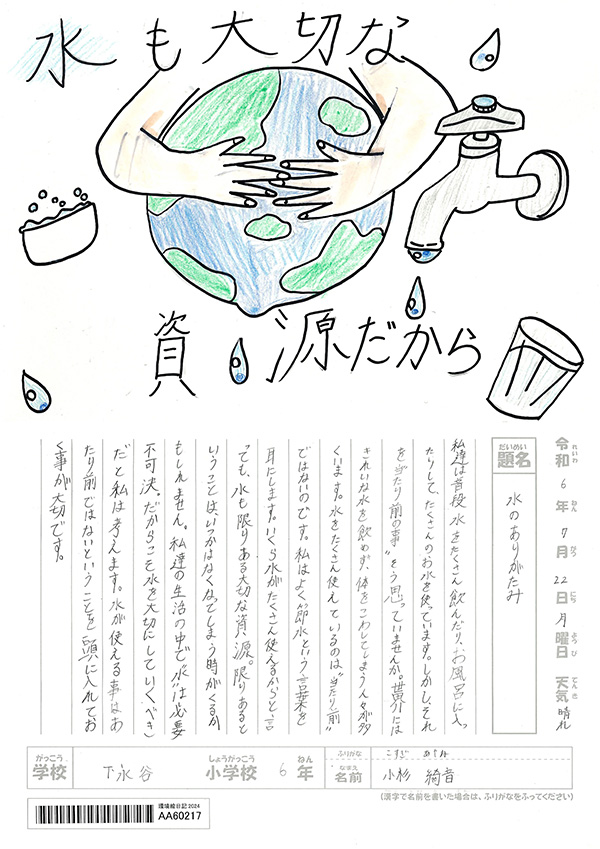 水も大切な
資源だから
令和6年7月22日月曜日 天気 晴れ
れいわ ねん がつ にち ようび てんき
だいめい
題名
水のありがたみ
私達は普段水をたくさん飲んだり、お風呂に入っ
たりして、たくさんのお水を使っています。しかし、それ
を"当たり前の事"そう思っていませんか。世界には
きれいな水を飲めず、体をこわしてしまう人々が多
くいます。水をたくさん使えているのは"当たり前"
ではないのです。私はよく節水という言葉を
耳にします。いくら水がたくさん使えるからと言
っても、水も限りある大切な資源。限りあると
いうことは、いつかはなくなってしまう時がくるか
もしれません。私達の生活の中で"水"は必要
不可決。だからこそ水を大切にしていくべき
だと私は考えます。水が使える事はあ
たり前ではないということを頭に入れてお
く事が大切です。
がっこう しょうがっこう ねん
学校 下永谷 小学校 6年
ふりがな こすぎ
なまえ
名前 小杉 綺音
(漢字で名前を書いた場合は、ふりがなをふってください)
環境絵日記2024
AA60217